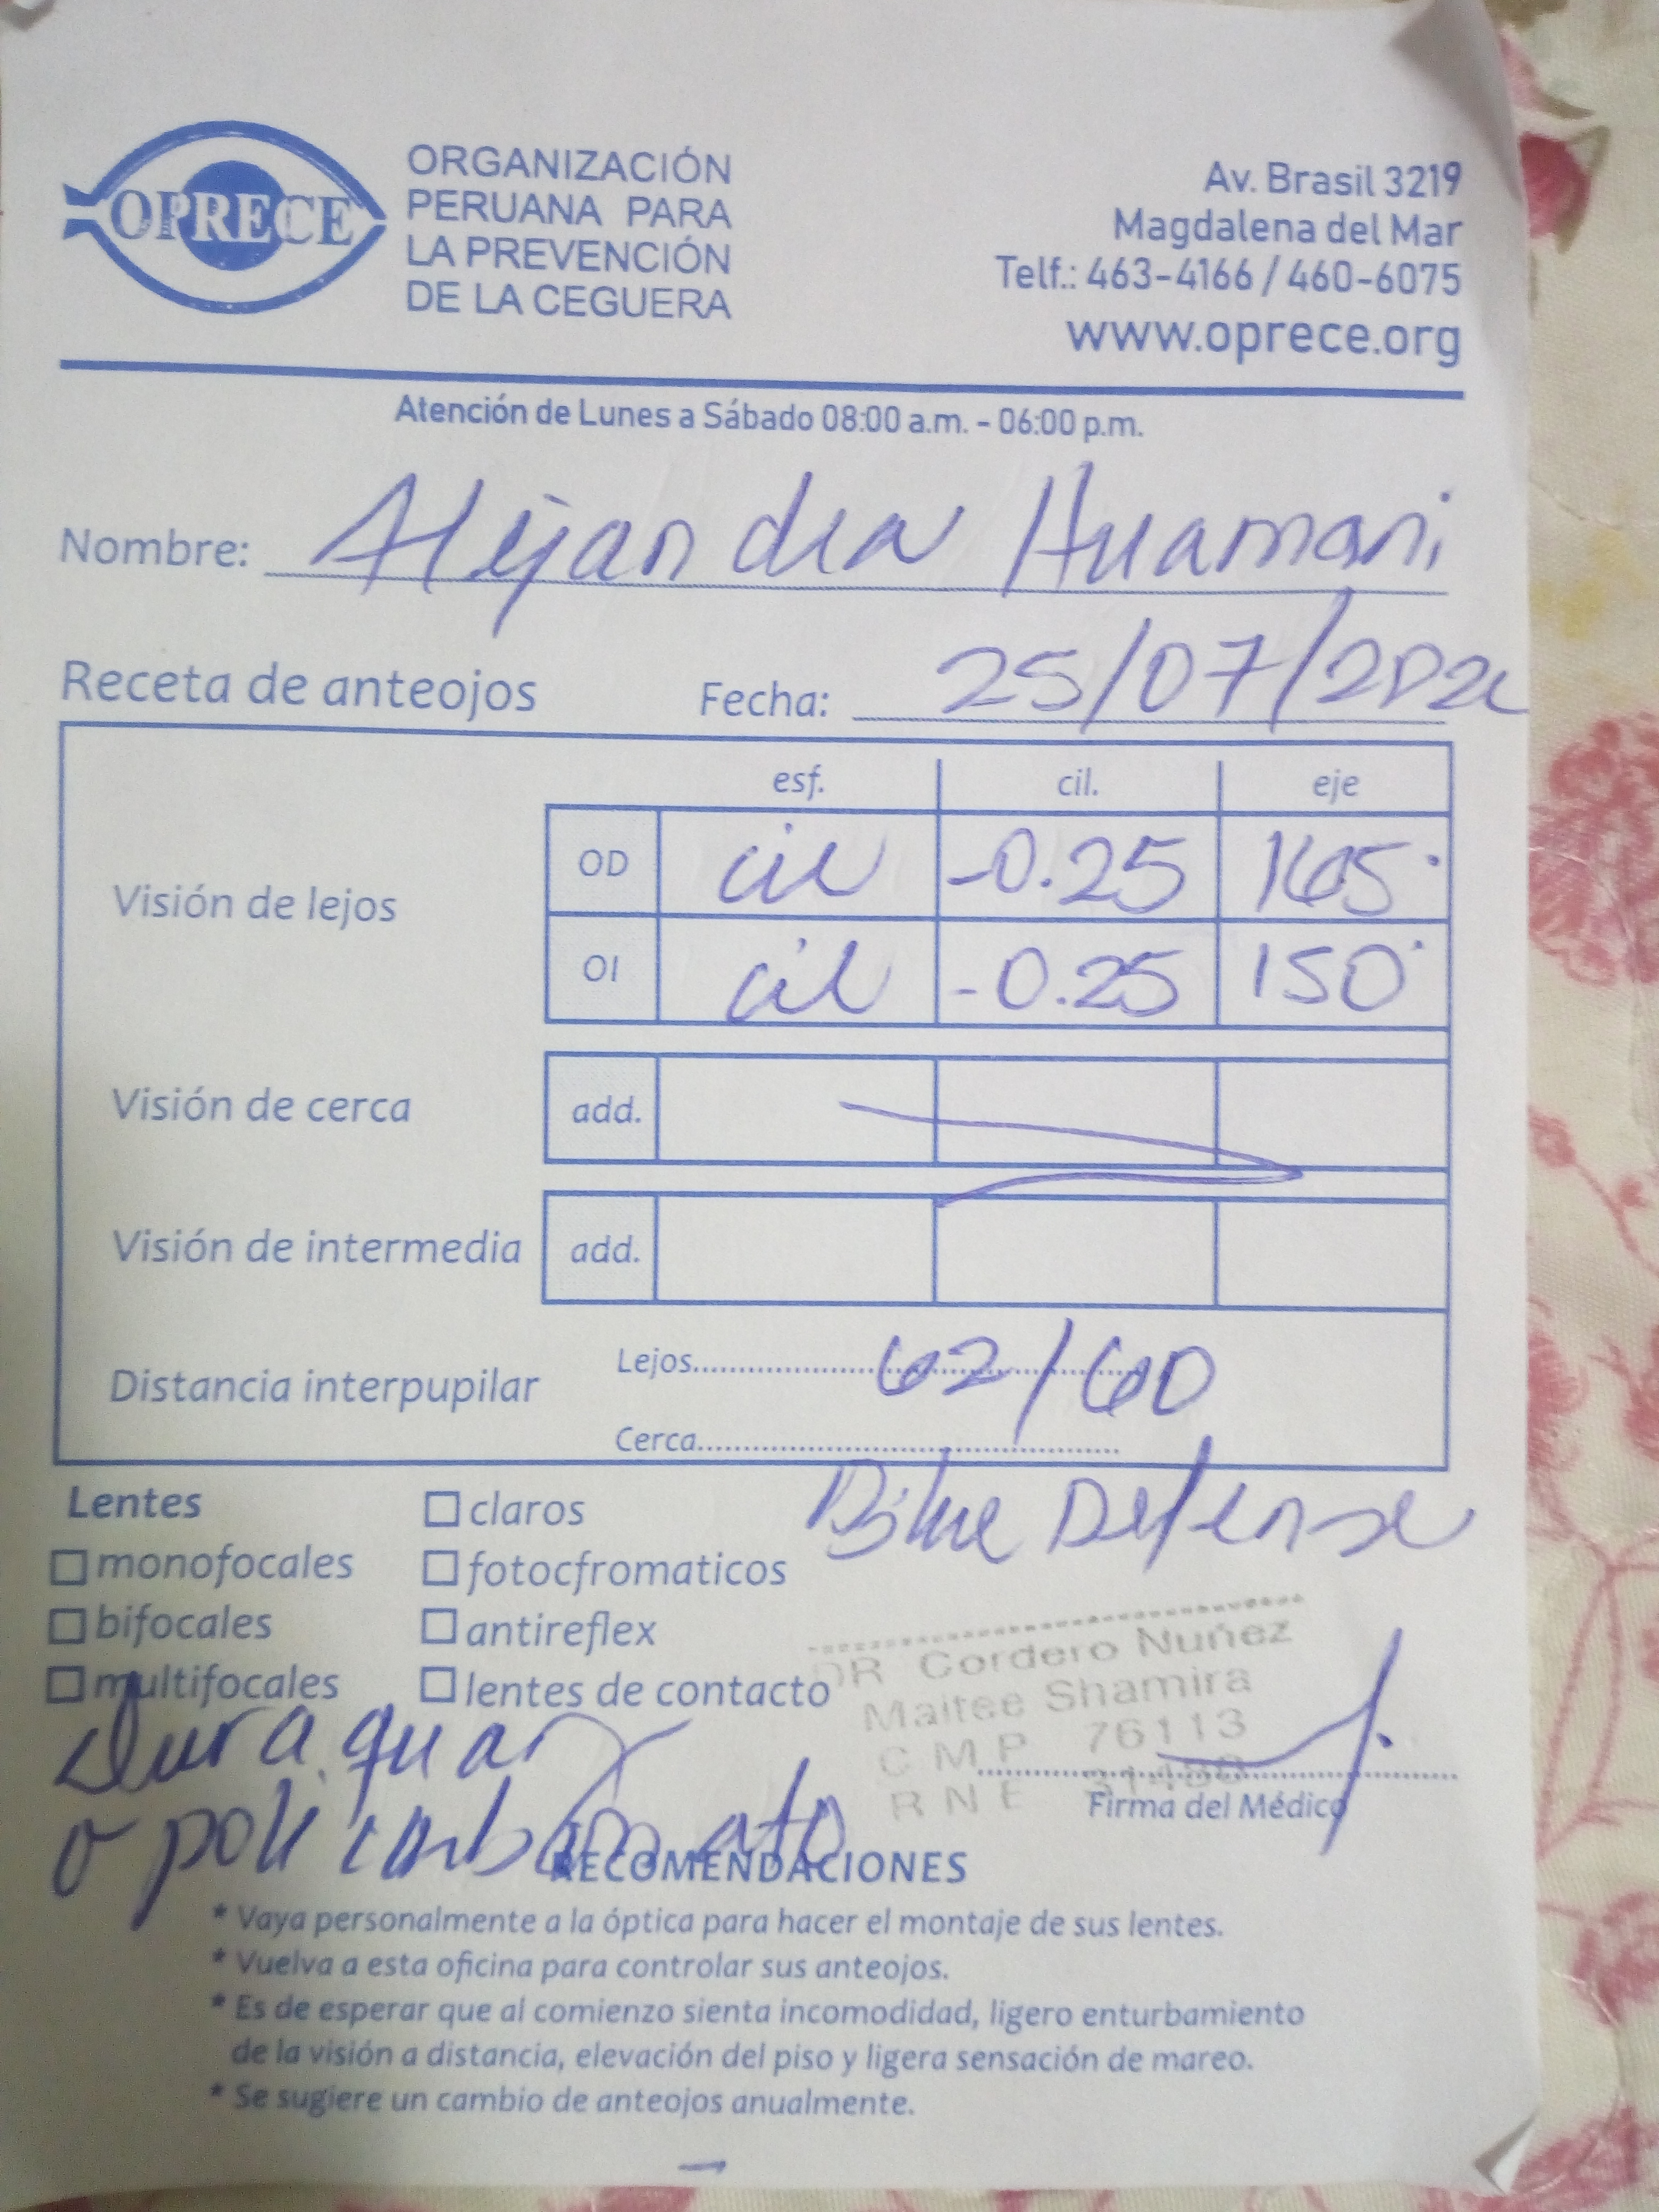 OPRECE
ORGANIZACIÓN
PERUANA PARA
LA PREVENCIÓN
DE LA CEGUERA
Av. Brasil 3219
Magdalena del Mar
Telf.: 463-4166 / 460-6075
www.oprece.org
Atención de Lunes a Sábado 08:00 a.m. - 06:00 p.m.
Nombre: Alejandra Huamani
Receta de anteojos Fecha: 25/07/202
esf. cil. eje
Visión de lejos
OD cil -0.25 165°
OI cil -0.25 150°
Visión de cerca add.
Visión de intermedia add.
Distancia interpupilar
Lejos 62/60
Cerca
Blue Defense
Lentes
claros
monofocales
fotocfromaticos
bifocales
antireflex
multifocales
lentes de contacto
Duraguar
o policarbonato
DR Cordero Nuñez
Maitee Shamira
C M P 76113
R N E
Firma del Médico
RECOMENDACIONES
* Vaya personalmente a la óptica para hacer el montaje de sus lentes.
* Vuelva a esta oficina para controlar sus anteojos.
* Es de esperar que al comienzo sienta incomodidad, ligero enturbamiento
de la visión a distancia, elevación del piso y ligera sensación de mareo.
* Se sugiere un cambio de anteojos anualmente.